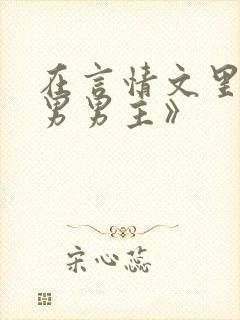 在言情文里
男男主》
宋心蕊